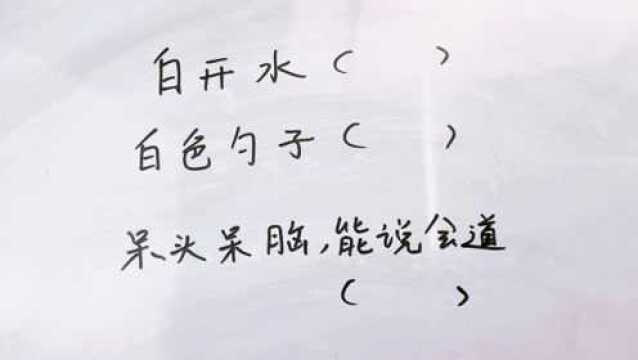 白开水（ ）
白色勺子（ ）
呆头呆脑，能说会道
（ ）